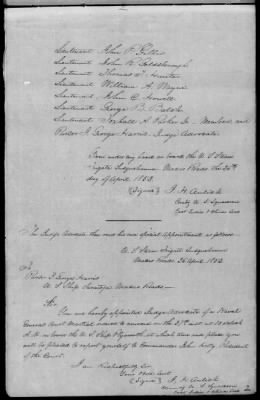 Lieutenant John P. Gillis
Lieutenant John R. Goldsborough
Lieutenant Thomas T. Hunter
Lieutenant William A. Wayne
Lieutenant John C. Howell
Lieutenant George B. Balch
Lieutenant Foxhall A. Parker Jr. Members and
Purser J. George Harris, Judge Advocate.
Given under my hand on board the U. S. Steam
Frigate Susquehanna Macao Roads this 26th
day of April 1852.
(Signed) J. H. Aulick
Comdg U. S. Squadron
East Indies & China Seas
The Judge Advocate then read his own special appointment as follows
U. S. Steam Frigate Susquehanna
Macao Roads 26 April 1852.
To
Purser J. George Harris
U. S. Ship Saratoga Macao Roads
Sir
You are hereby appointed Judge Advocate of a Naval
General Court Martial ordered to convene on the 27th inst at 10 o'clock
A. M. on board the U. S. Ship Plymouth, at which time and place you
will be pleased to report yourself to Commander John Kelly President
of the Court.
I am Respectfully Sir
Your Obdt Servt
(Signed) J. H. Aulick
Comdg U. S. Squadron
East Indies & China Seas